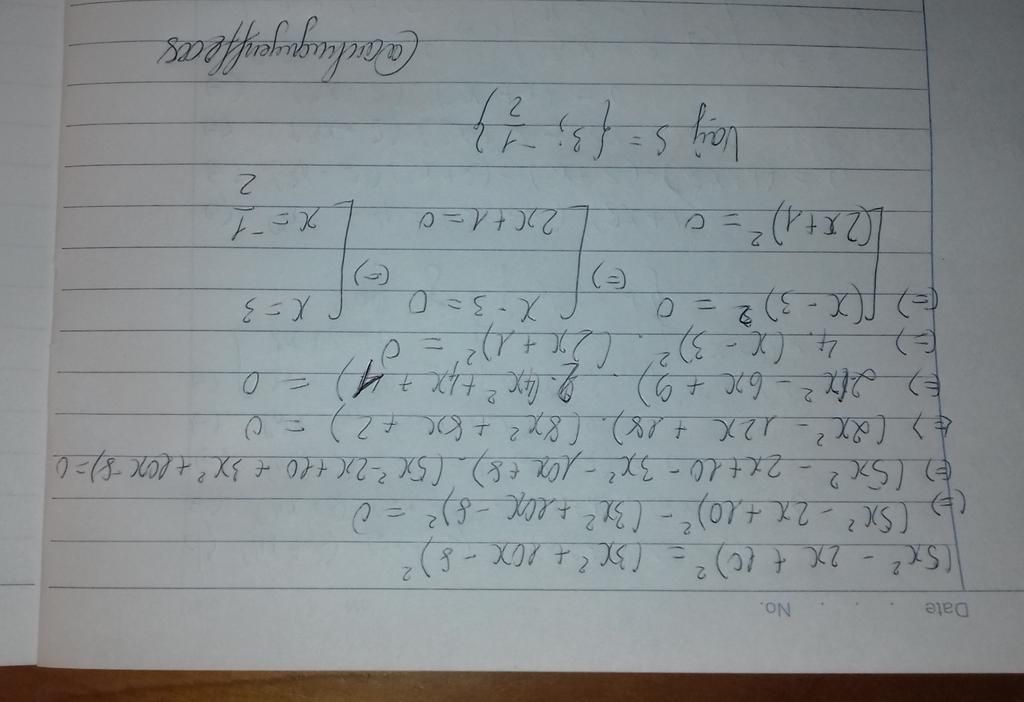 Date . . . . No.
(5x² - 2x + 10)² = (3x² + 10x - 8)²
(=) (5x² - 2x + 10)² - (3x² + 10x - 8)² = 0
(=) (5x² - 2x + 10 - 3x² - 10x + 8). (5x² - 2x + 10 + 3x² + 10x - 8) = 0
(=) (2x² - 12x + 18). (8x² + 8x + 2) = 0
(=) 2(x² - 6x + 9). 2. (4x² + 4x + 1) = 0
(=) 4. (x - 3)². (2x + 1)² = 0
(=) [(x - 3)² = 0 (=) [x - 3 = 0 (=) [x = 3
[(2x + 1)² = 0 [2x + 1 = 0 [x = -1/2
Vậy S = {3; -1/2}